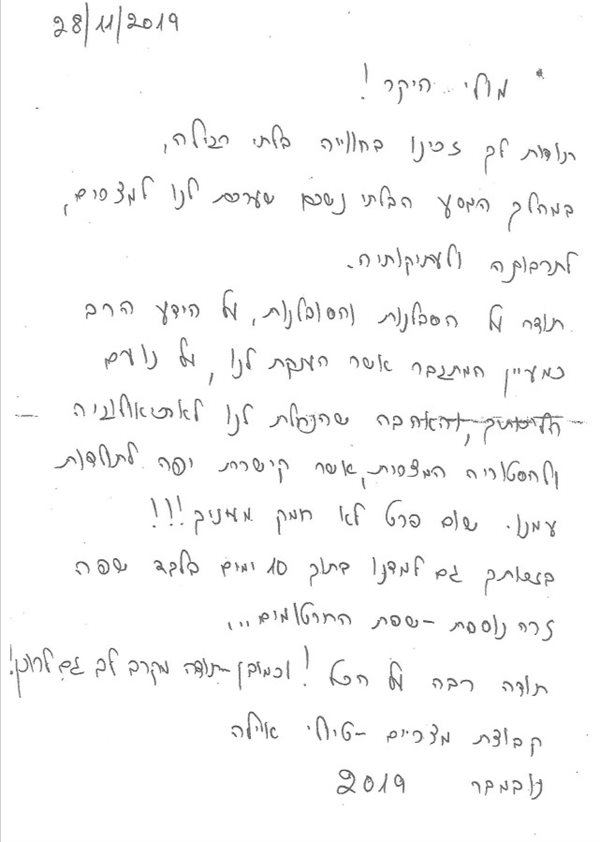 28/11/2019
מולי היקר!
תודות לך זכינו בחווייה בלתי רגילה,
במהלך המסע הבלתי נשכח שערכת לנו למצרים,
לתרבותה ולעתיקותיה.
תודה על הסבלנות והסובלנות, על הידע הרב
כמעיין המתגבר אשר הענקת לנו, על נועם
והאהבה שהנחלת לנו לארכיאולוגיה
ולהסטוריה המצרית, אשר קישרת יפה לתולדות
עמנו. שום פרט לא חמק מעיניך!!!
בזכותך גם למדנו בתוך 10 ימים בלבד שפה
זרה נוספת - שפת החרטומים...
תודה רבה על הכל! וכמובן - תודה מקרב לב גם לרונן!
קבוצת מצריים - טיולי איילה
נובמבר 2019